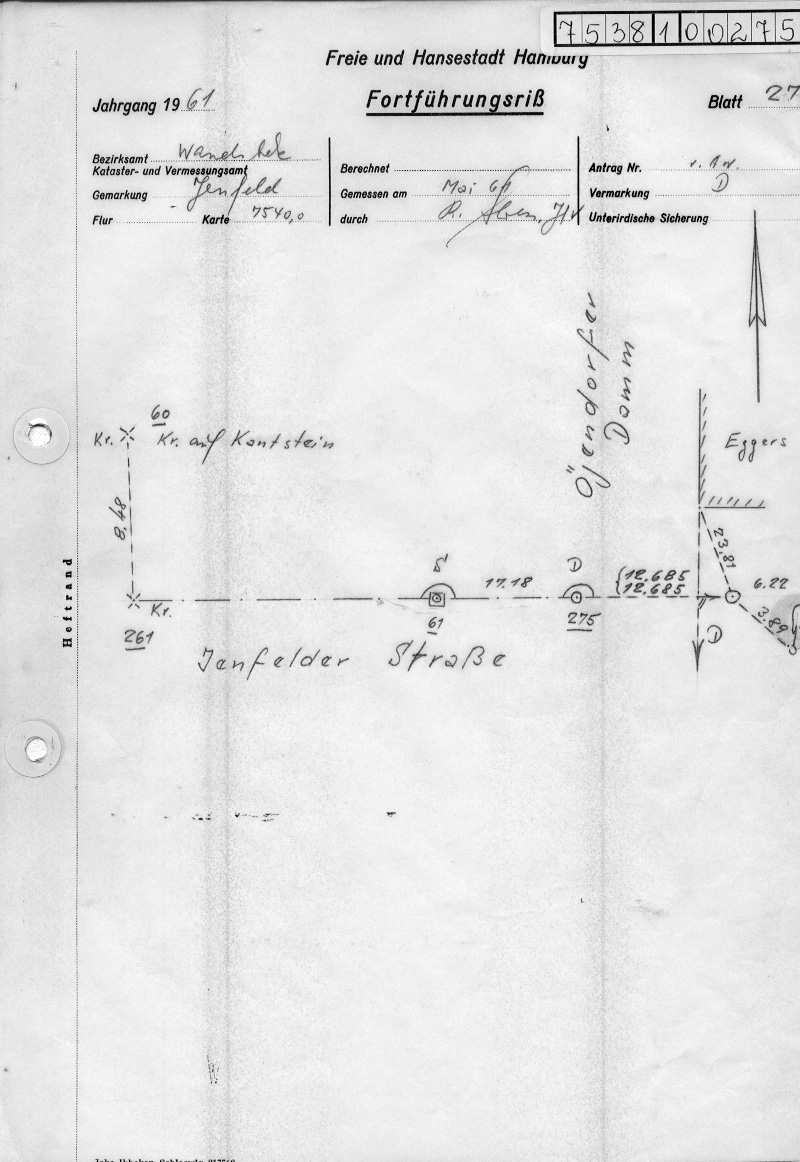 7538100275
Freie und Hansestadt Hamburg
Jahrgang 1961
Fortführungsriß
Blatt 27
Bezirksamt Wandsbek
Kataster- und Vermessungsamt
Gemarkung Jenfeld
Flur Karte 7540,0
Berechnet
Gemessen am Mai 61
durch R.
Antrag Nr.
Vermarkung D
Unterirdische Sicherung
Öjendorfer
Damm
60
Kr. Kr. auf Kantstein
Eggers
8.48
23,81
D
17.18
12.685
12.685
6.22
Kr.
61
275
3.89
261
D
Jenfelder Straße
Heftrand